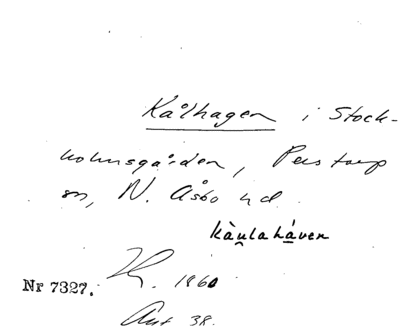 Kålhagen i Stock-
holmsgården, Perstorp
sn, N. Åsbo hd.
kàu̯lahá̱ven
H. 1860
Nr 7327.
Ant 38.